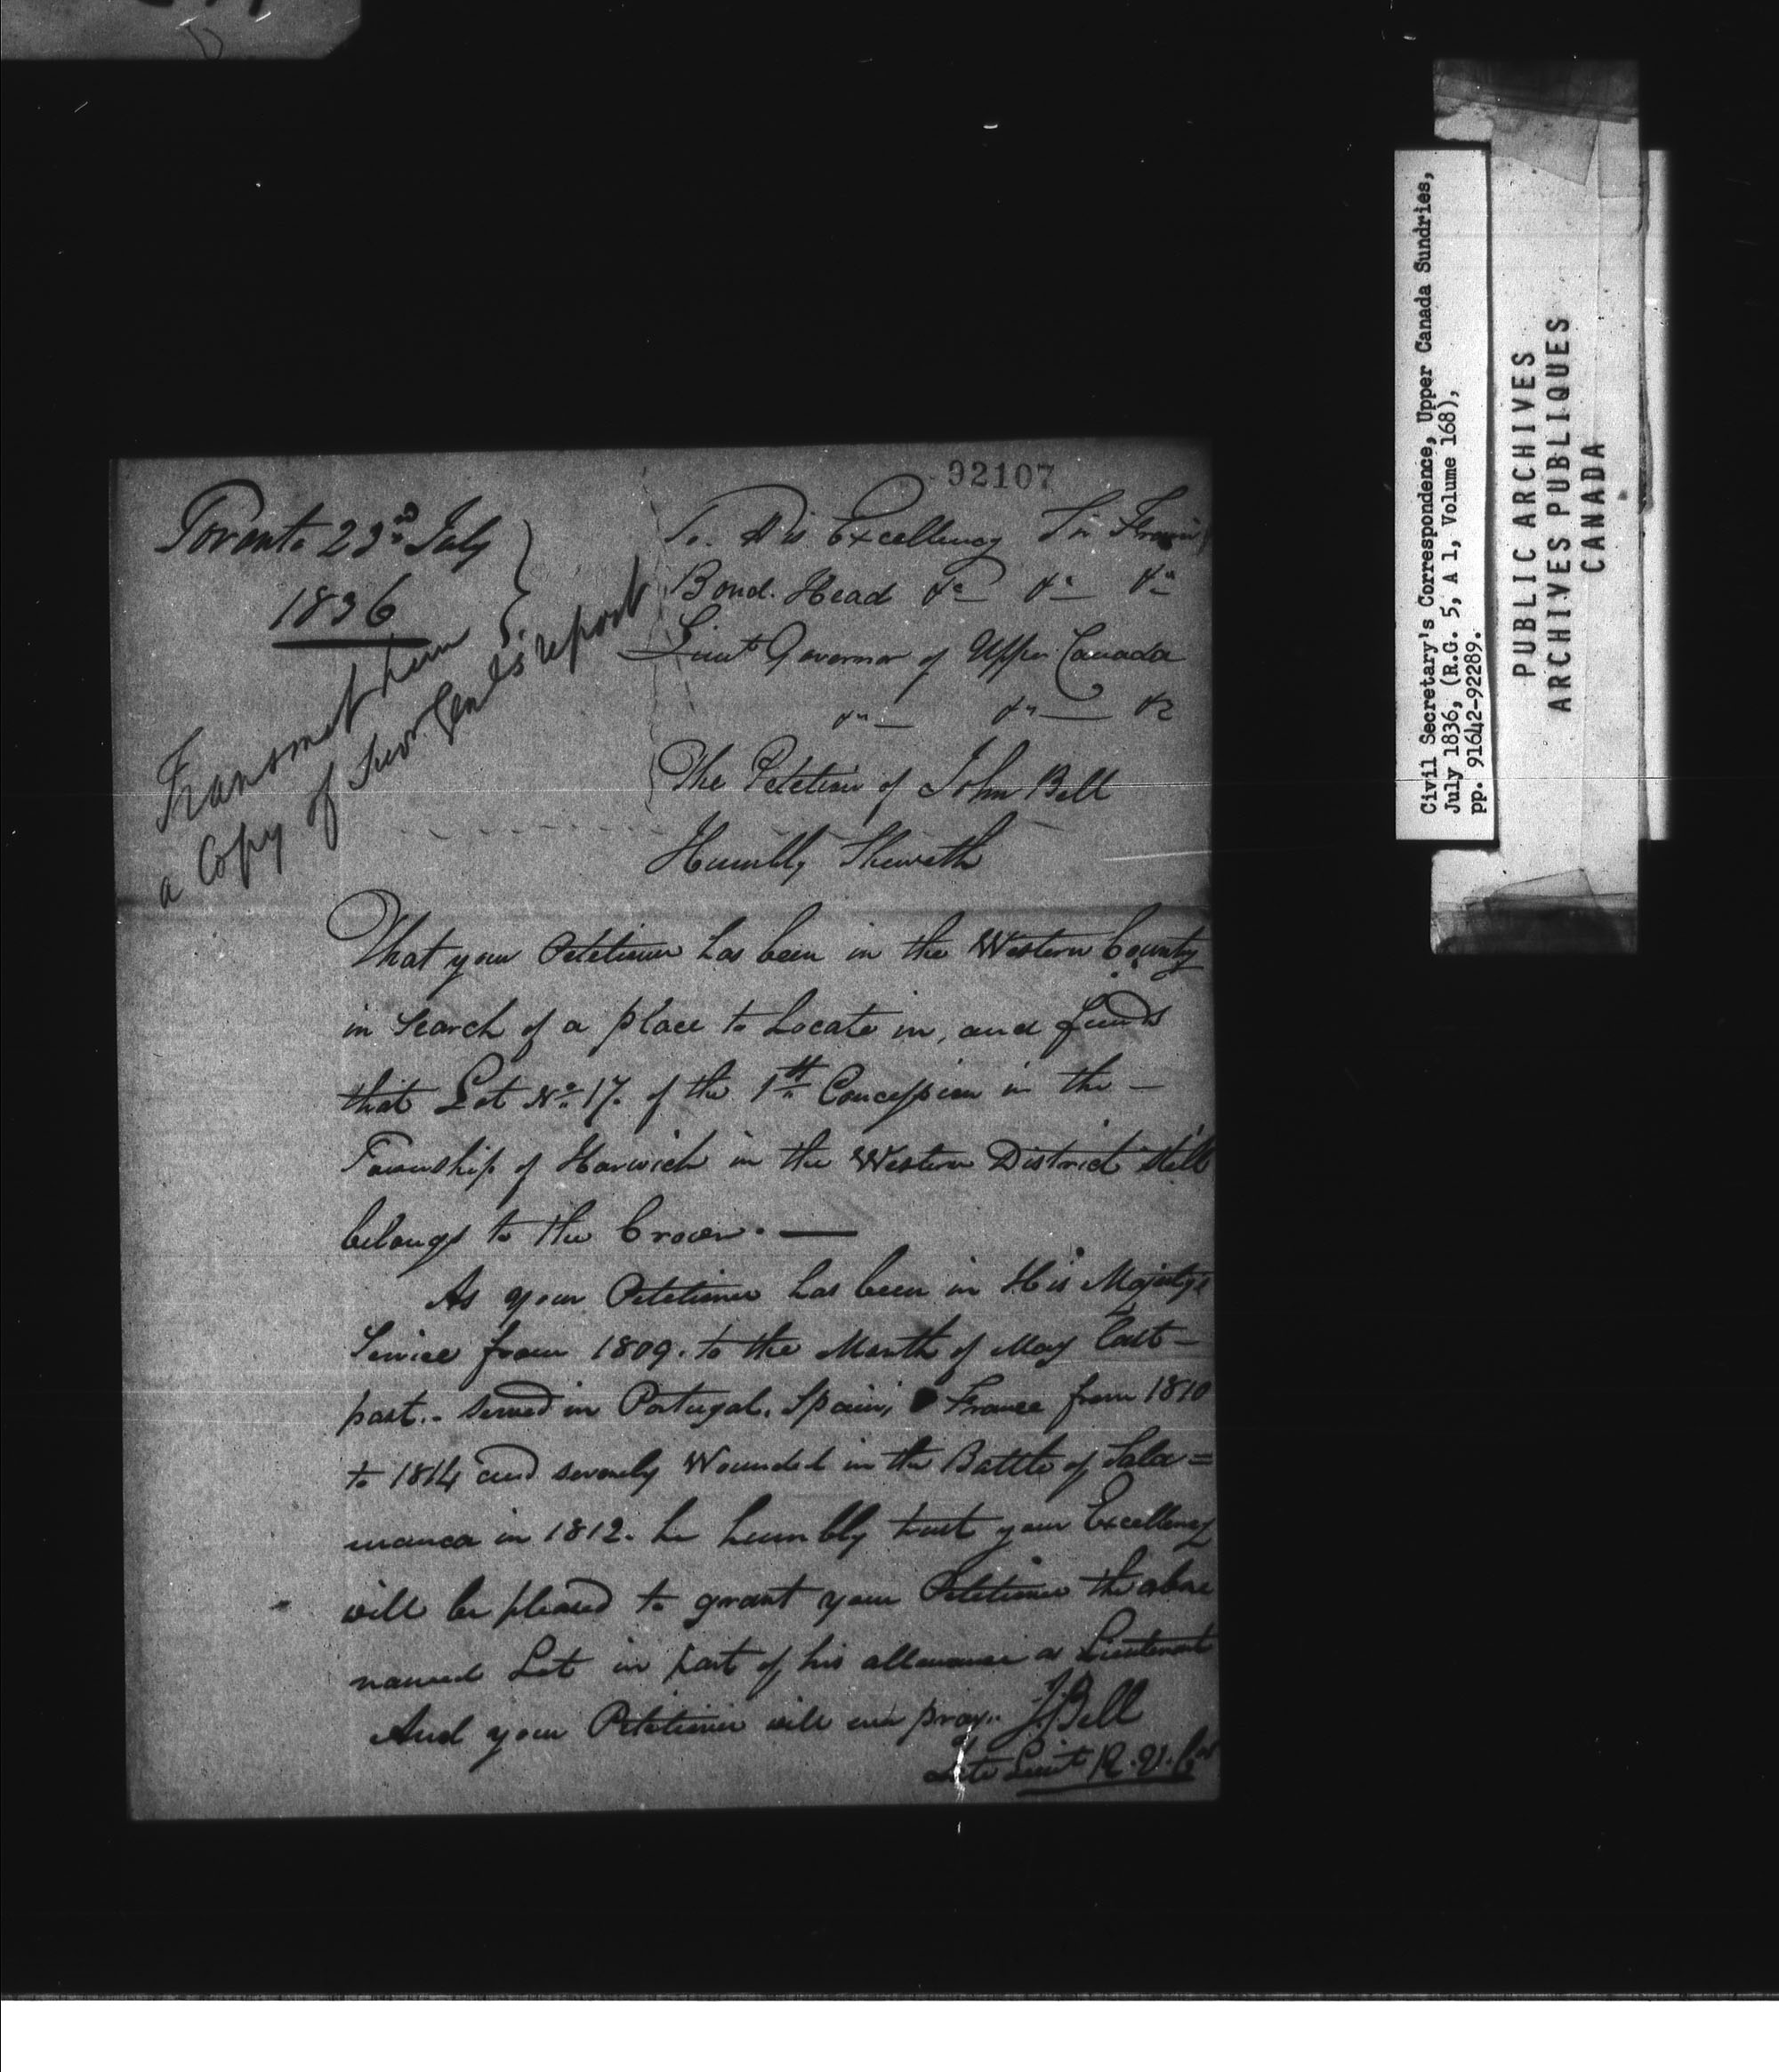 92107
Toronto 23rd July
1836
Transmit him
a Copy of Surv. Genl's report
To His Excellency Sir Francis
Bond Head &c &c &c
Lieut Governor of Upper Canada
&c &c &c
The Petition of John Bell
Humbly Sheweth
That your Petitioner has been in the Western County
in search of a place to Locate in, and finds
that Lot No. 17. of the 1th Concession in the —
Township of Harwich in the Western District still
belongs to the Crown. —
As your Petitioner has been in His Majestys
Service from 1809. to the Month of May last —
past. - served in Portugal, Spain, France from 1810
to 1814 and severely Wounded in the Battle of Sala=
manca in 1812. he humbly trust your Excellency
will be pleased to grant your Petitioner the above
named Lot in part of his allowance as Lieutenant
And your Petitioner will ever pray..
J. Bell
Late Lieut R. V.
Civil Secretary's Correspondence, Upper Canada Sundries,
July 1836, (R.G. 5, A 1, Volume 168),
pp. 91642-92289.
PUBLIC ARCHIVES
ARCHIVES PUBLIQUES
CANADA